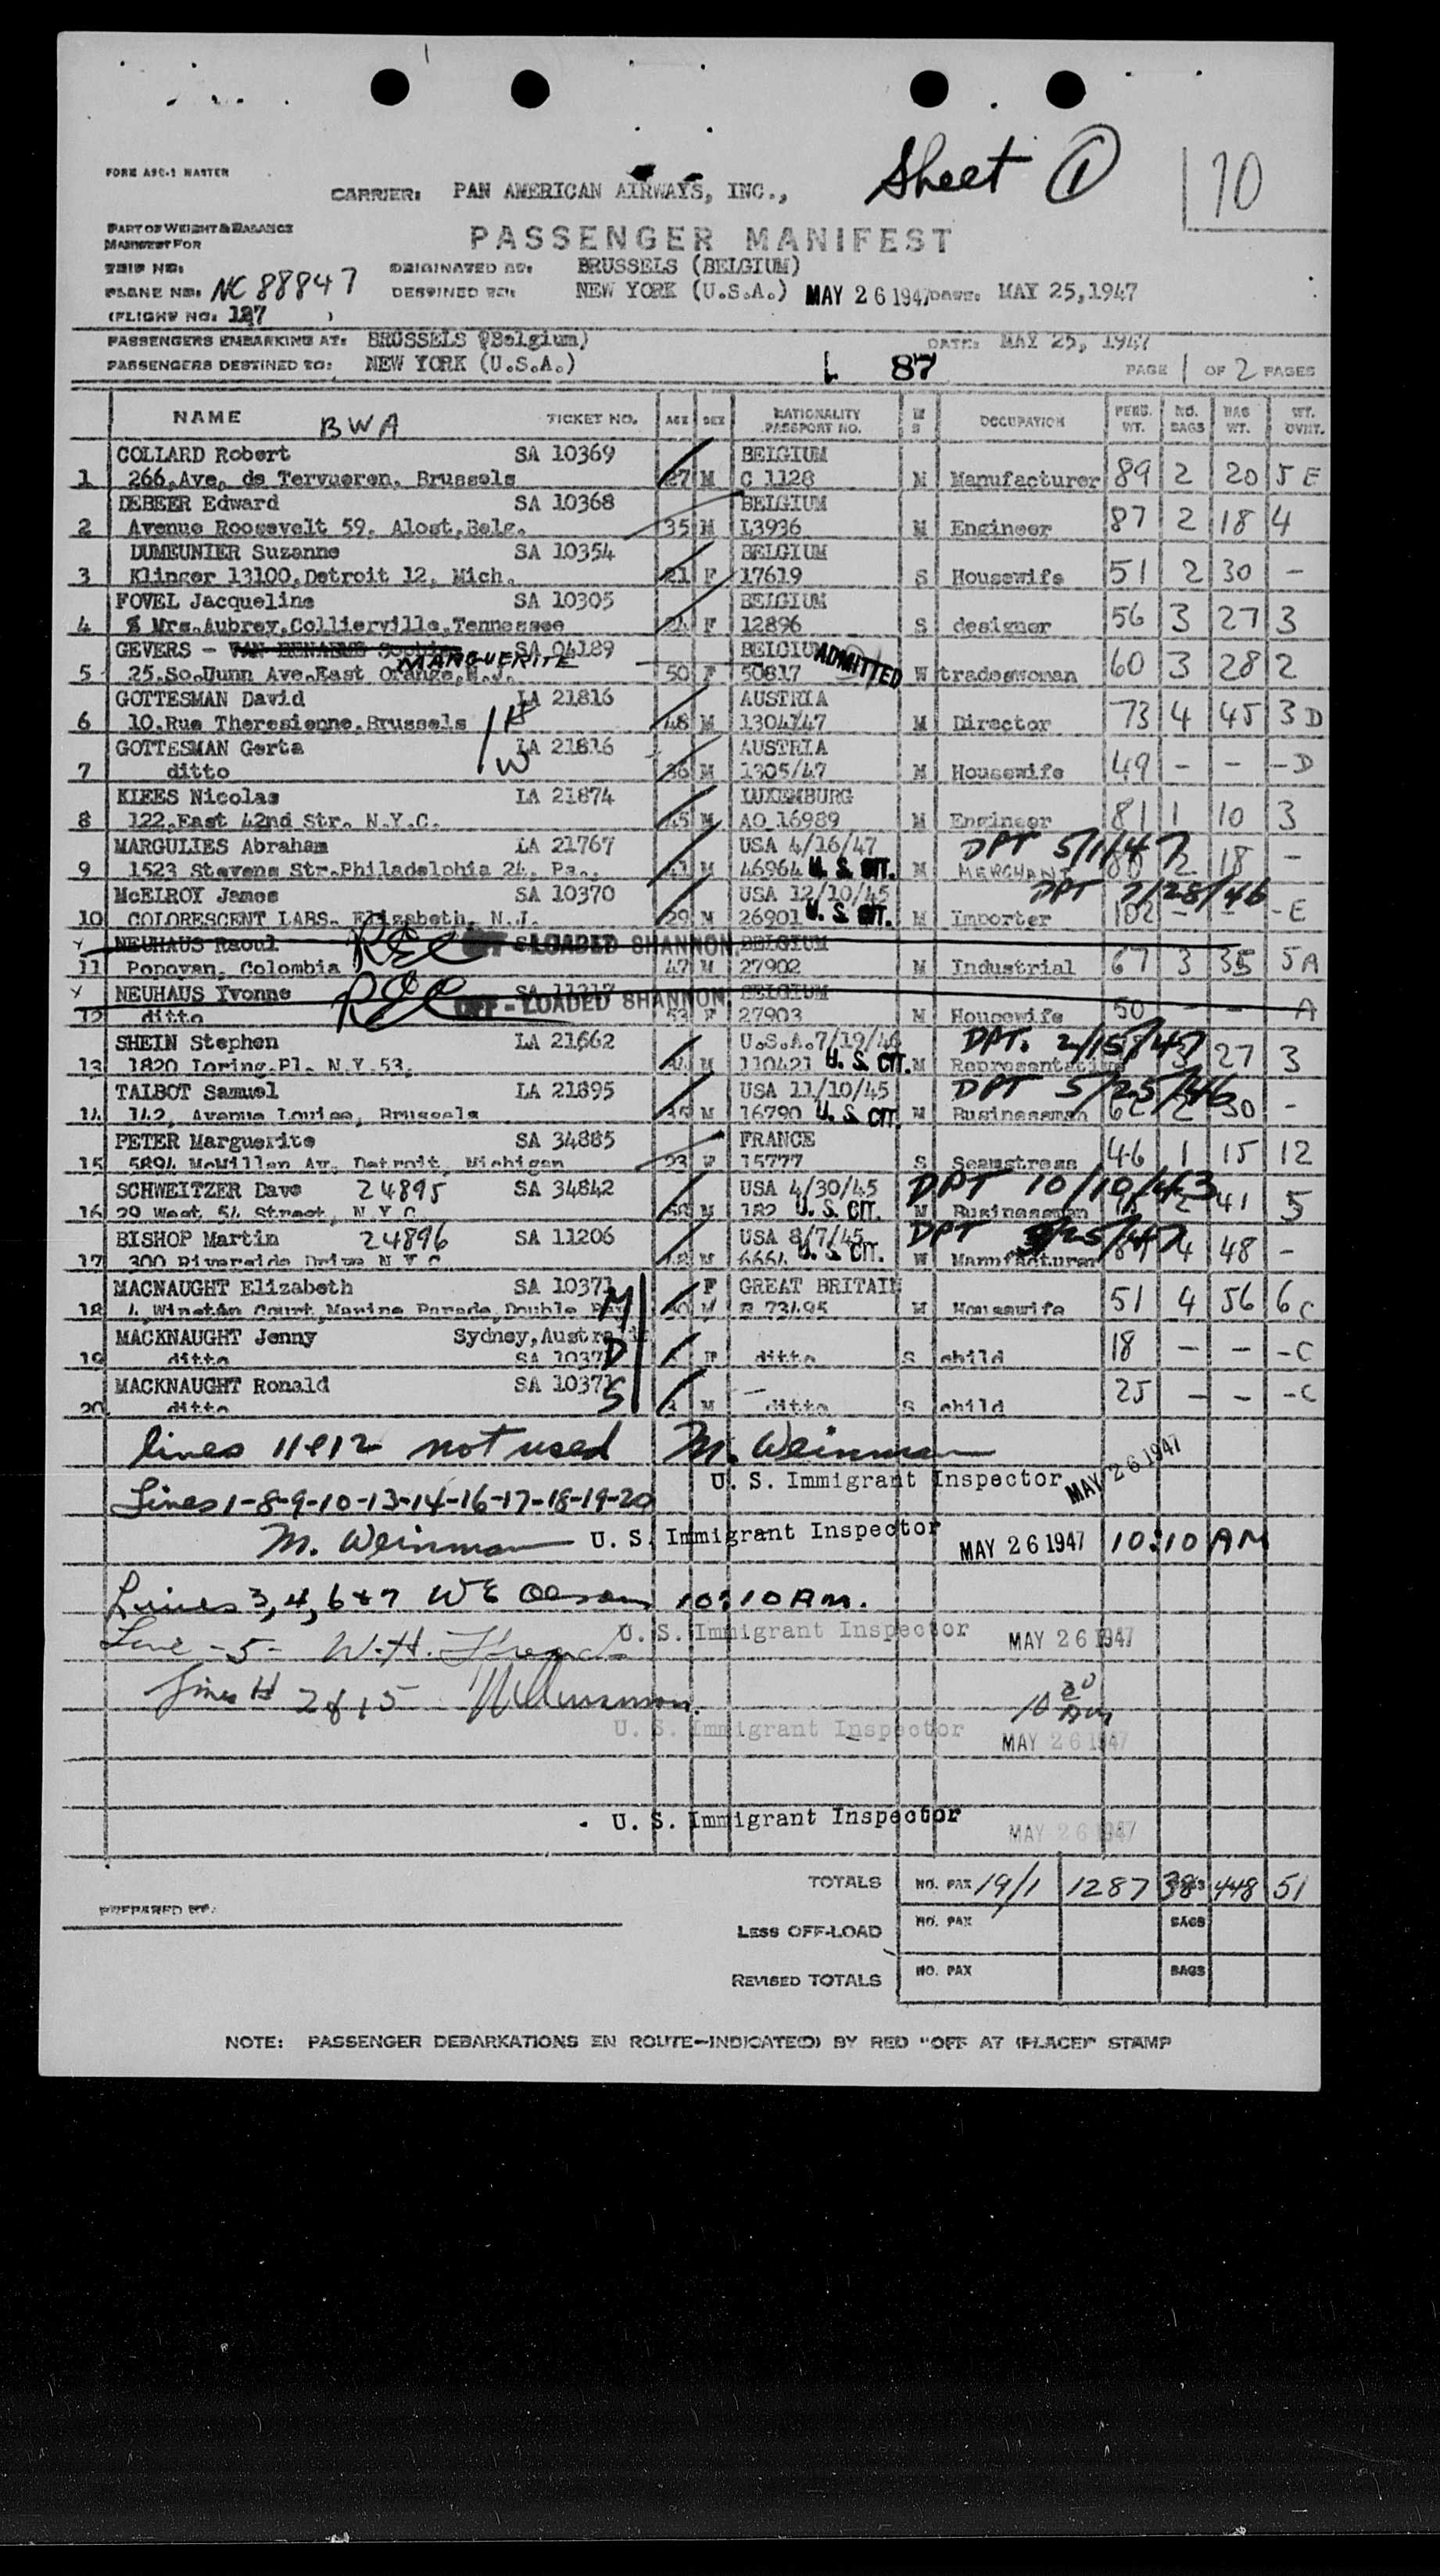 Sheet 1
10
FORM ASC-1 MASTER
CARRIER: PAN AMERICAN AIRWAYS, INC.,
PART OF WEIGHT & BALANCE
MANIFEST FOR
PASSENGER MANIFEST
TRIP NO:
ORIGINATED AT: BRUSSELS (BELGIUM)
PLANE NO: NC 88847
DESTINED TO: NEW YORK (U.S.A.) MAY 26 1947 DATE: MAY 25,1947
(FLIGHT NO: 127 )
PASSENGERS EMBARKING AT: BRUSSELS (Belgium) DATE: MAY 25, 1947
PASSENGERS DESTINED TO: NEW YORK (U.S.A.) L 87 PAGE 1 OF 2 PAGES
NAME BWA TICKET NO. AGE SEX NATIONALITY PASSPORT NO. M S OCCUPATION PERS. WT. NO. BAGS BAG WT. WT. OVNT.
COLLARD Robert SA 10369 BELGIUM
1 266,Ave, de Tervueren, Brussels 27 M C 1128 M Manufacturer 89 2 20 5 E
DEBEER Edward SA 10368 BELGIUM
2 Avenue Roosevelt 59. Alost,Belg. 35 M L3936 M Engineer 87 2 18 4
DUMEUNIER Suzanne SA 10354 BELGIUM
3 Klinger 13100,Detroit 12, Mich. 21 F 17619 S Housewife 51 2 30 -
FOVEL Jacqueline SA 10305 BELGIUM
4 Mrs.Aubrey,Collierville,Tennessee 24 F 12896 S designer 56 3 27 3
GEVERS - MARGUERITE SA 04189 BELGIUM ADMITTED
5 25.So.Dunn Ave.East Orange,N.J. 50 F 50817 W tradeswoman 60 3 28 2
GOTTESMAN David H LA 21816 AUSTRIA
6 10.Rue Theresienne.Brussels 48 M 1304/47 M Director 73 4 45 3 D
GOTTESMAN Gerta W LA 21816 AUSTRIA
7 ditto 36 M 1305/47 M Housewife 49 - - - D
KIEES Nicolas LA 21874 LUXEMBURG
8 122,East 42nd Str. N.Y.C. 45 M AO 16989 M Engineer 81 1 10 3
MARGULIES Abraham LA 21767 USA 4/16/47 DPT 5/1/47
9 1523 Stevens Str.Philadelphia 24, Pa., 41 M 46964 U. S. CIT. M MERCHANT 80 2 18 -
McELROY James SA 10370 USA 12/10/45 DPT
10 COLORESCENT LABS. Elizabeth, N.J. 29 M 26901 U. S. CIT. M Importer 102 - - - E
NEUHAUS Raoul REC OFF-LOADED SHANNON BELGIUM
11 Popoyan, Colombia 47 M 27902 M Industrial 67 3 35 5 A
NEUHAUS Yvonne REC SA 11217 OFF-LOADED SHANNON BELGIUM
12 ditto 53 F 27903 M Housewife 50 - - A
SHEIN Stephen LA 21662 U.S.A.7/19/46 DPT. 2/15/47
13 1820 Loring.Pl. N.Y.53, M 110421 U. S. CIT. M Representative 3 27 3
TALBOT Samuel LA 21895 USA 11/10/45 DPT 5/25/46
14 142, Avenue Louise, Brussels M 16790 U. S. CIT. M Businessman 62 2 30 -
PETER Marguerite SA 34885 FRANCE
15 5894 McMillan Av. Detroit, Michigan 23 F 15777 S Seamstress 46 1 15 12
SCHWEITZER Dave 24895 SA 34842 USA 4/30/45 DPT 10/10/43
16 29 West 54 Street, N.Y.C. M 182 U. S. CIT. M Businessman 2 41 5
BISHOP Martin 24896 SA 11206 USA 8/7/45 DPT
17 300 Riverside Drive N.Y.C. 48 M 6664 U. S. CIT. W Manufacturer 4 48 -
MACNAUGHT Elizabeth SA 10371 M F GREAT BRITAIN
18 4,Winston Court,Marine Parade,Double Bay M 30 R 73495 M Housewife 51 4 56 6 C
MACKNAUGHT Jenny Sydney,Australia
19 ditto SA 10371 D F ditto S child 18 - - - C
MACKNAUGHT Ronald SA 10371
20 ditto S M ditto S child 25 - - - C
lines 11 & 12 not used M. Weinman
U. S. Immigrant Inspector MAY 26 1947
Lines 1-8-9-10-13-14-16-17-18-19-20
M. Weinman U. S. Immigrant Inspector MAY 26 1947 10:10 AM
Lines 3, 4, 6 & 7 W E Olson 10:10 AM.
U. S. Immigrant Inspector MAY 26 1947
Line -5- W.H.
Lines # 2 & 15
10 30 AM
U. S. Immigrant Inspector MAY 26 1947
U. S. Immigrant Inspector MAY 26 1947
TOTALS NO. PAX 19/1 1287 38 448 51
PREPARED BY:
LESS OFF-LOAD NO. PAX BAGS
REVISED TOTALS NO. PAX BAGS
NOTE: PASSENGER DEBARKATIONS EN ROUTE—INDICATE(D) BY RED "OFF AT (PLACE)" STAMP